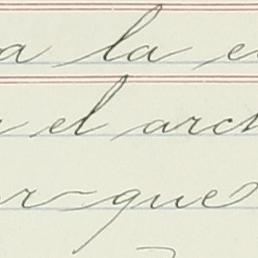 a la e
el arch
que